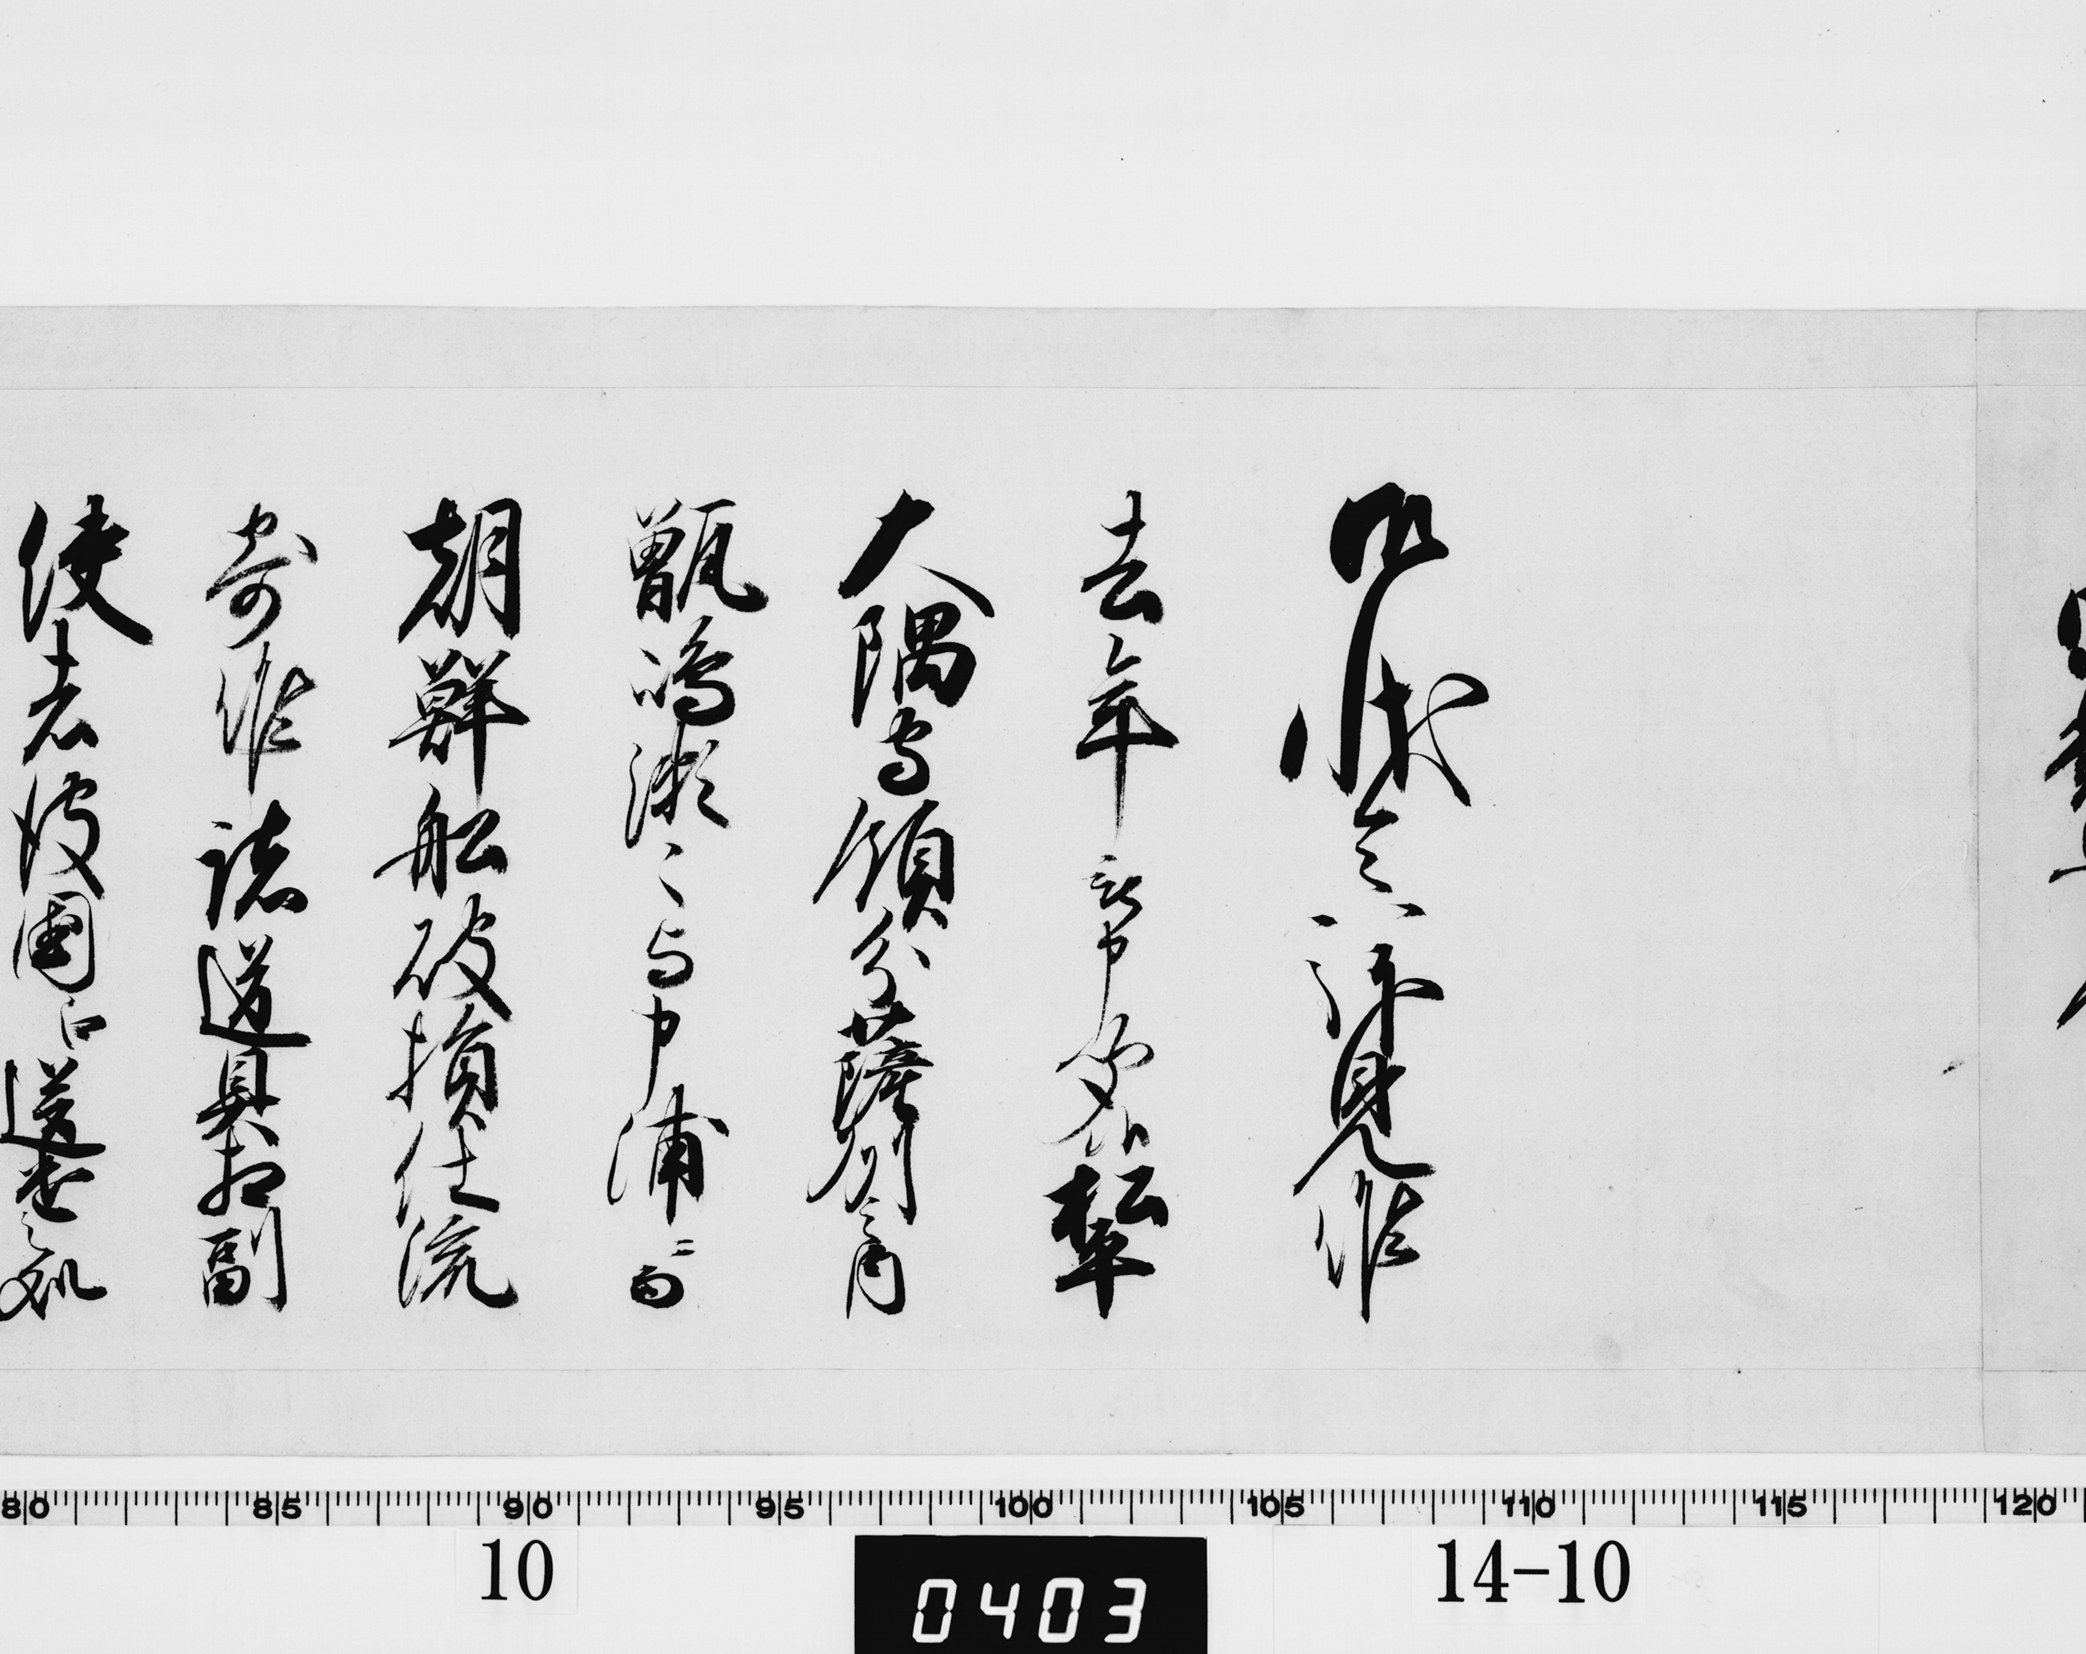 御状令拝見候
去年 松平
大隅守領分薩州之内
甑嶋瀬々与申浦ニ而
朝鮮船破損仕流
寄候諸道具相副
使者彼国江送遣之処
80 85 90 95 100 105 110 115 120
10
0403
14-10